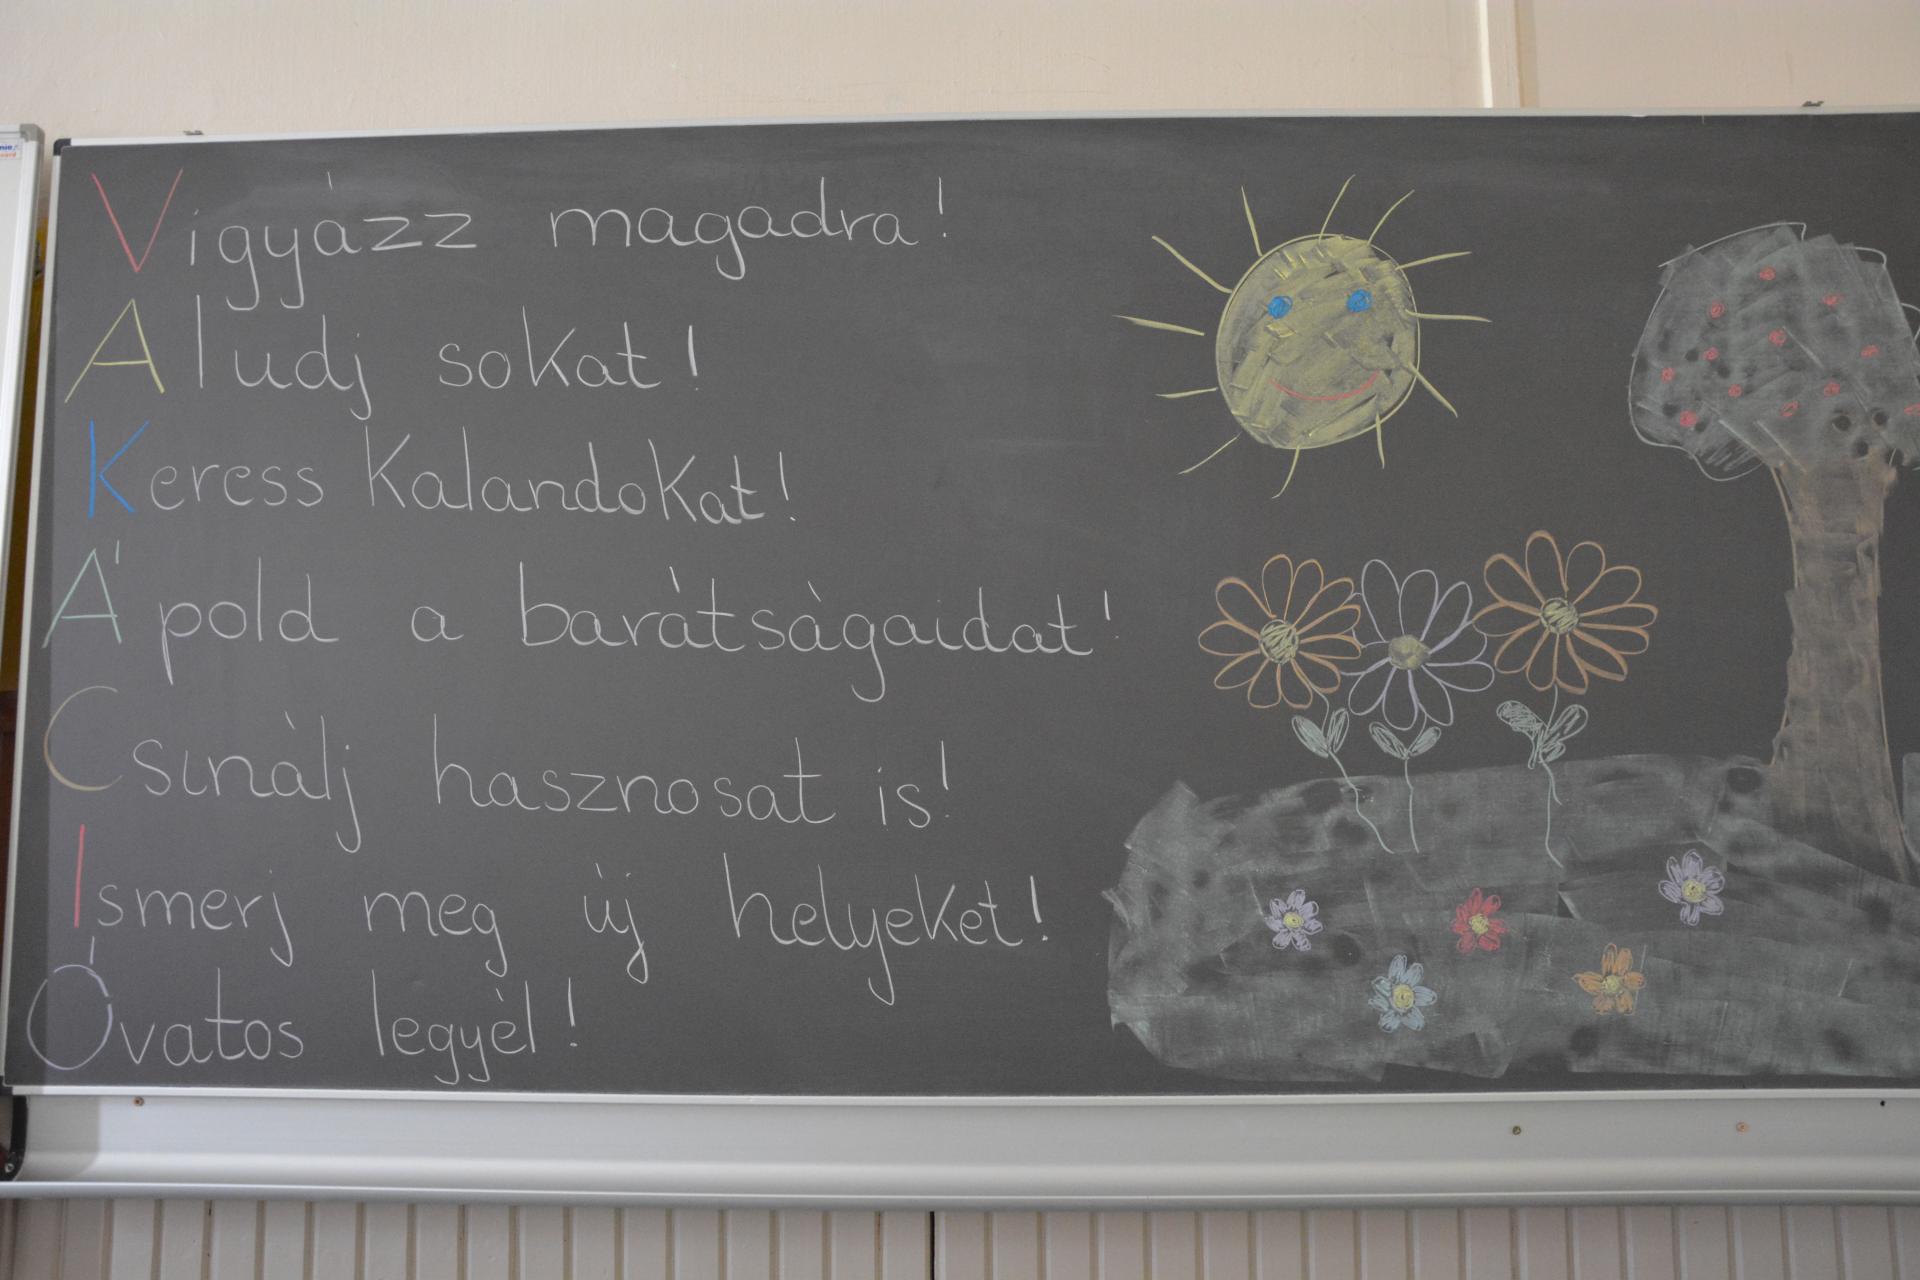 Vigyázz magadra!
Aludj sokat!
Keress kalandokat!
Ápold a barátságaidat!
Csinálj hasznosat is!
Ismerj meg új helyeket!
Óvatos legyél!